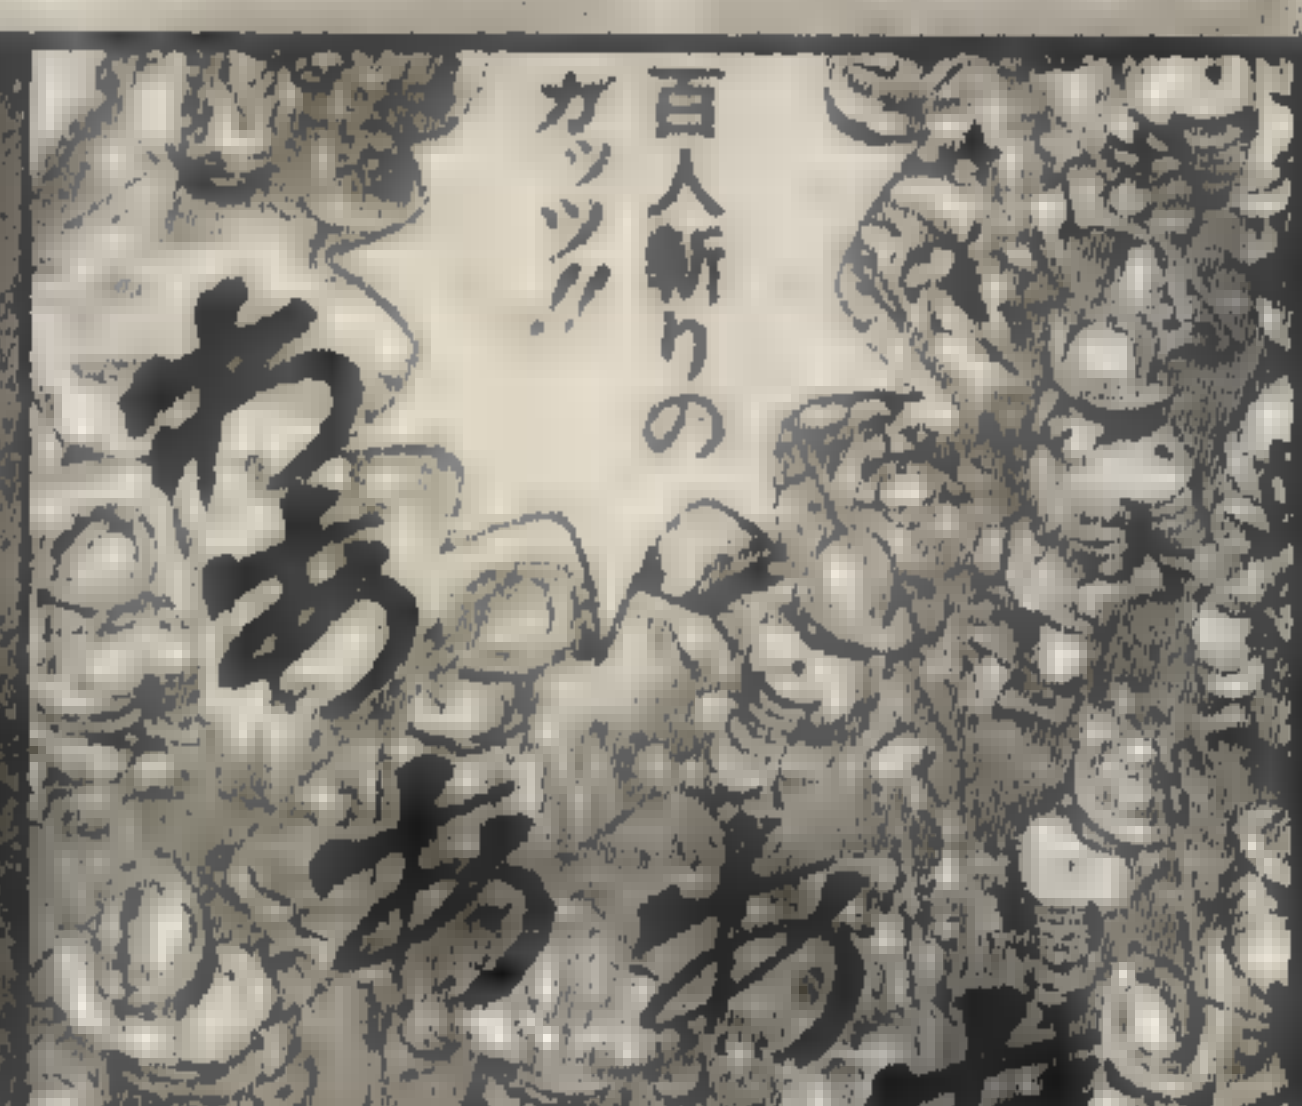 百人斬りの
ガッツ!!
わあああ